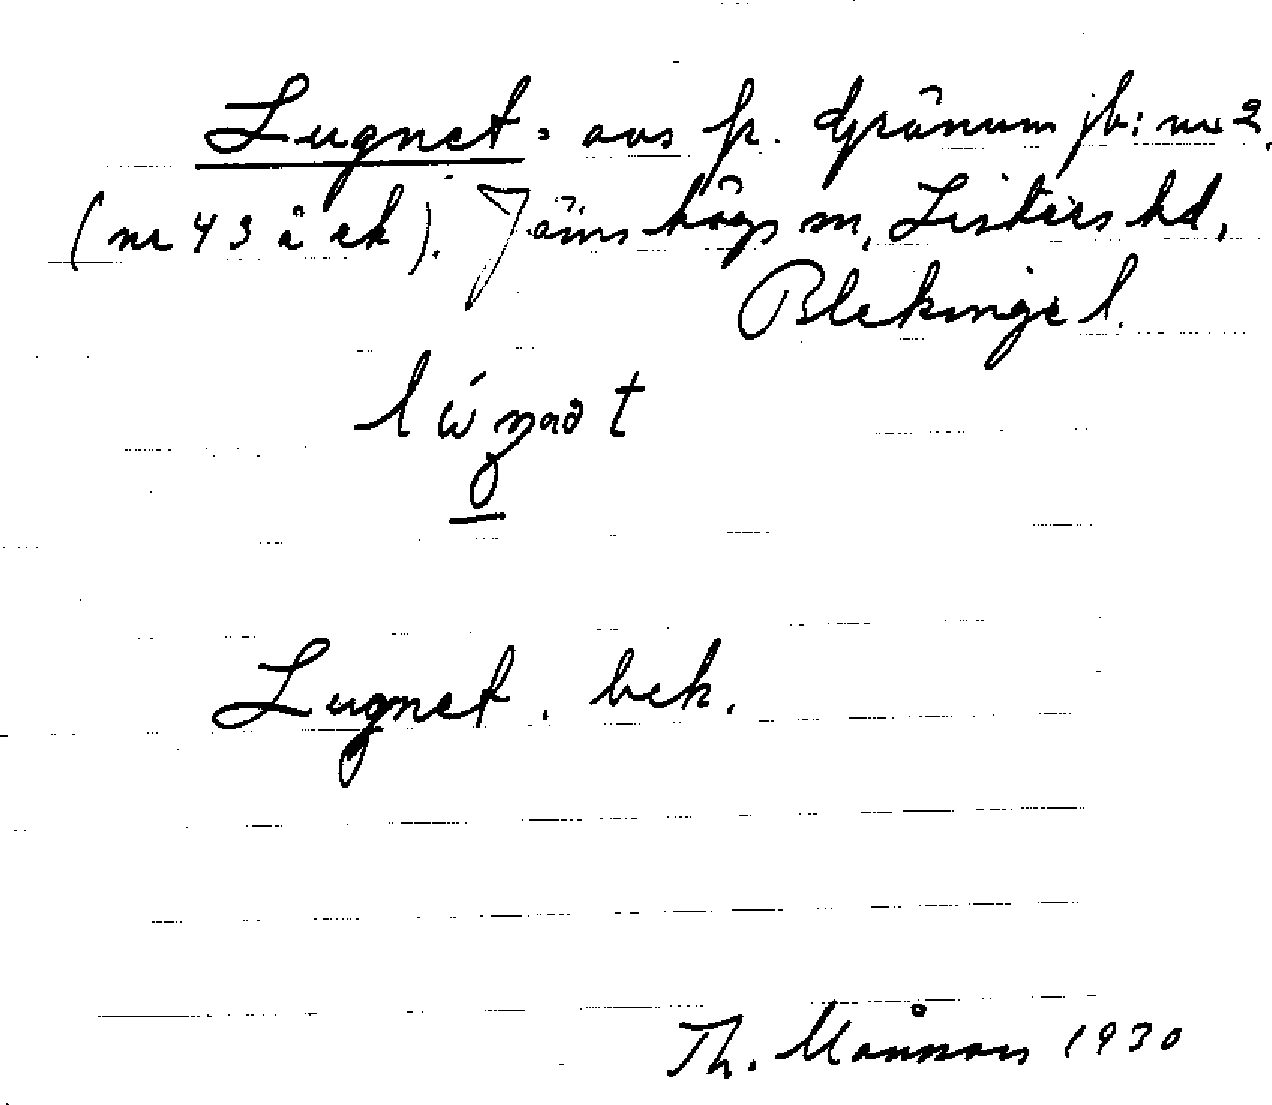 Lugnet: avs fr. Gränum jb: nr 2.
(nr 43 å ek). Jämshögs sn, Listers hd,
Blekinge l.
Lugnet. bek.
Th. Månsson 1930